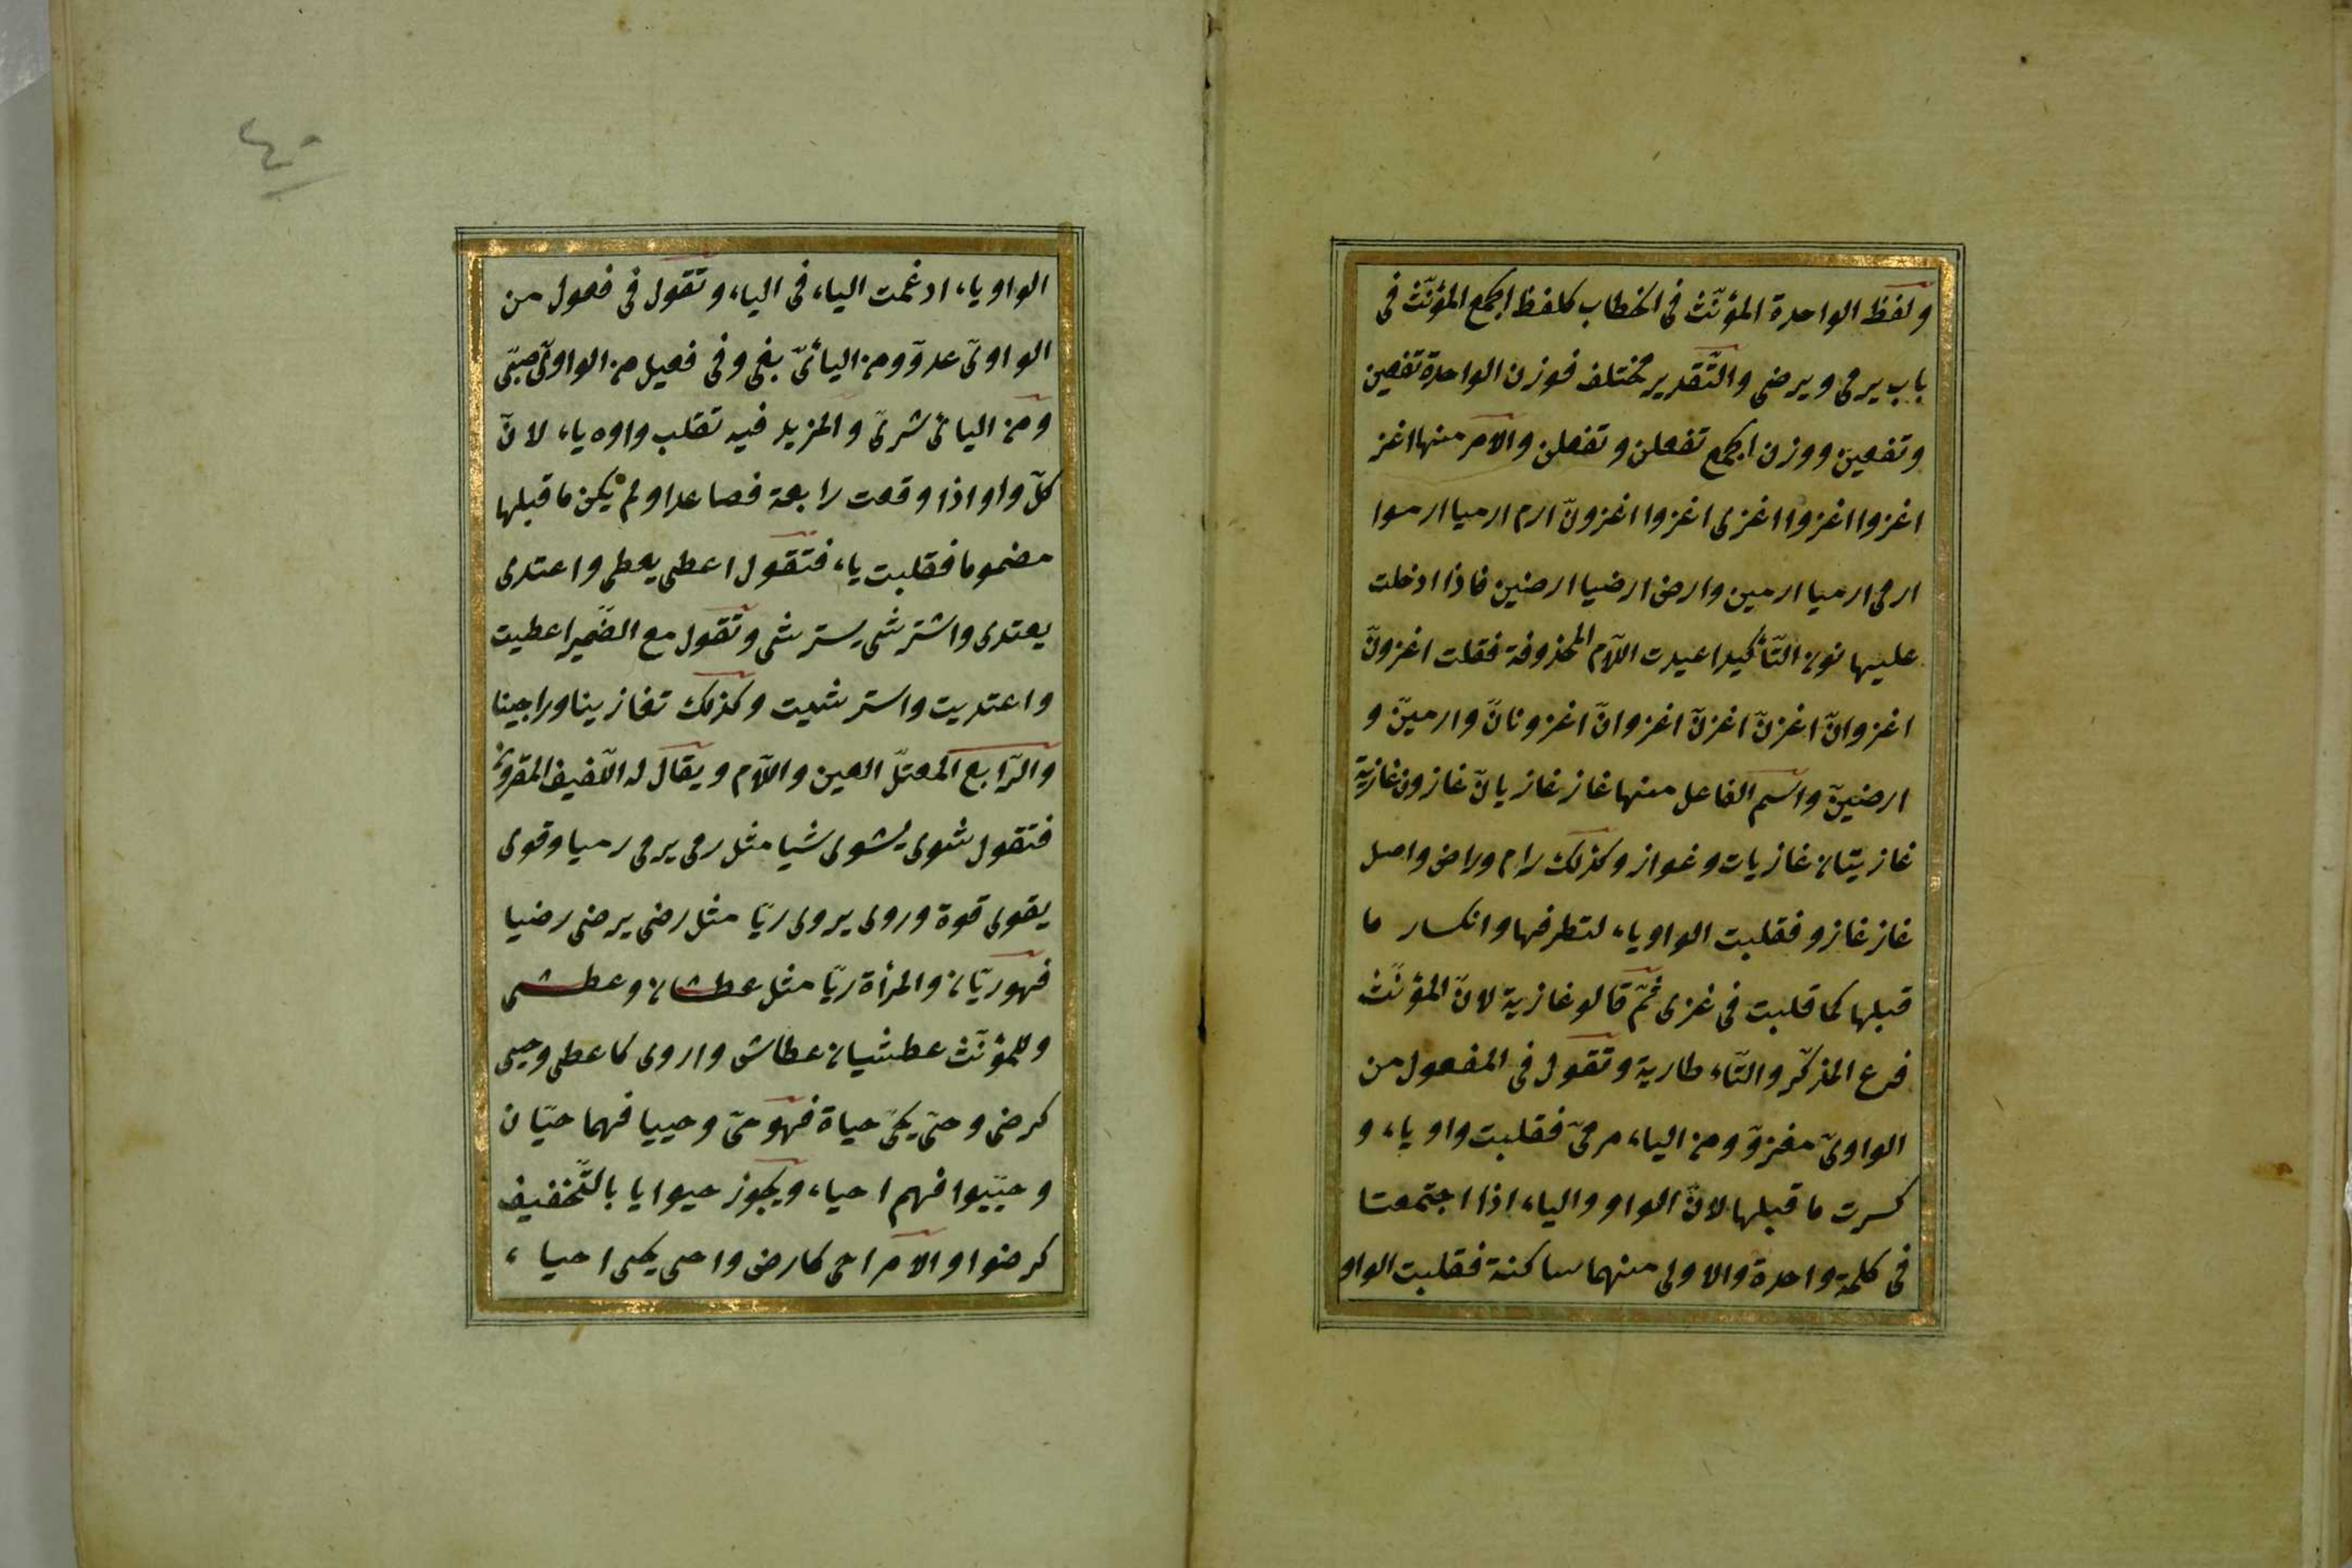 ولفظ الواحدة المؤنّث فى الخطاب كلفظ الجمع المؤنّث فى
باب يرمى ويرضى والتّقدير مختلف فوزن الواحدة تفعين
وتفعين ووزن الجمع تفعلن وتفعلن والامر منها اغز
اغزوا اغزوا اغزى اغزوا اغزونّ ارم ارميا ارموا
ارمى ارميا ارمين وارض ارضيا ارضين فاذا ادخلت
عليها نون التّأكيد اعيدت اللّام المحذوفة فقلت اغزونّ
اغزوانّ اغزنّ اغزنّ اغزوانّ اغزونانّ وارمينّ و
ارضينّ واسم الفاعل منها غاز غازيان غازون غازية
غازيتان غازيات وغواز وكذلك رام وراض واصل
غاز غازو فقلبت الواو ياء لتطرفها وانكسار ما
قبلها كما قلبت فى غزى ثمّ قالو غازية لانّ المؤنّث
فرع المذكّر والتّاء طارية وتقول فى المفعول من
الواوىّ مغزوّ ومن الياء مرمىّ فقلبت واو ياء و
كسرت ما قبلها لانّ الواو والياء اذا اجتمعتا
فى كلمة واحدة والاولى منهما ساكنة فقلبت الواو
٤٠
الواو ياء ادغمت الياء فى الياء وتقول فى فعول من
الواوىّ عدوّ ومن اليائىّ بغى وفى فعيل من الواوىّ صبّى
ومن اليائى شرىّ والمزيد فيه تقلب واوه ياء لانّ
كلّ واو اذا وقعت رابعة فصاعدا ولم يكن ما قبلها
مضموما فقلبت ياء فتقول اعطى يعطى واعتدى
يعتدى واشترشى يسترشى وتقول مع الضّمير اعطيت
واعتديت واسترشيت وكذلك تغازينا وراجينا
والرّابع المعتلّ العين واللّام ويقال له اللّفيف المقرون
فتقول شوى يشوى شيا مثل رمى يرمى رميا وقوى
يقوى قوة وروى يروى ريّا مثل رضى يرضى رضيا
فهو ريّان والمرأة ريّا مثل عطشان وعطشى
وللمؤنّث عطشيان عطاش واروى كاعطى وحيى
كرضى وحىّ يحىّ حياة فهو حىّ وحييا فهما حيّان
وحيّيوا فهم احياء ويجوز حيوا يا بالتّخفيف
كرضوا والامر احى كارض واحى يحى احياء